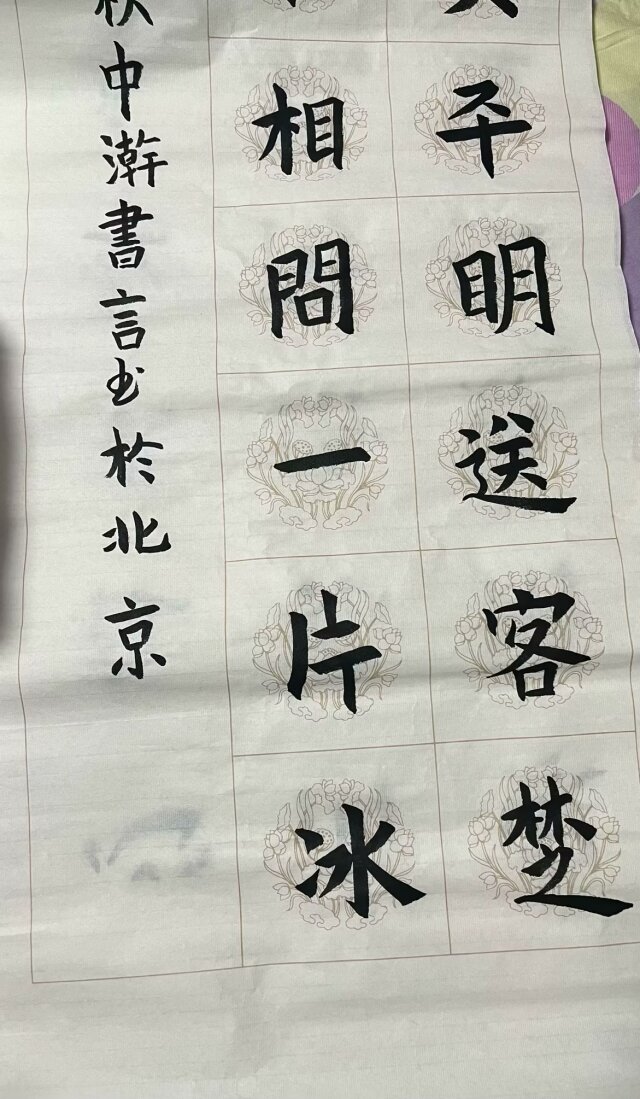 平明送客楚
相問一片冰
秋中澣書言书於北京